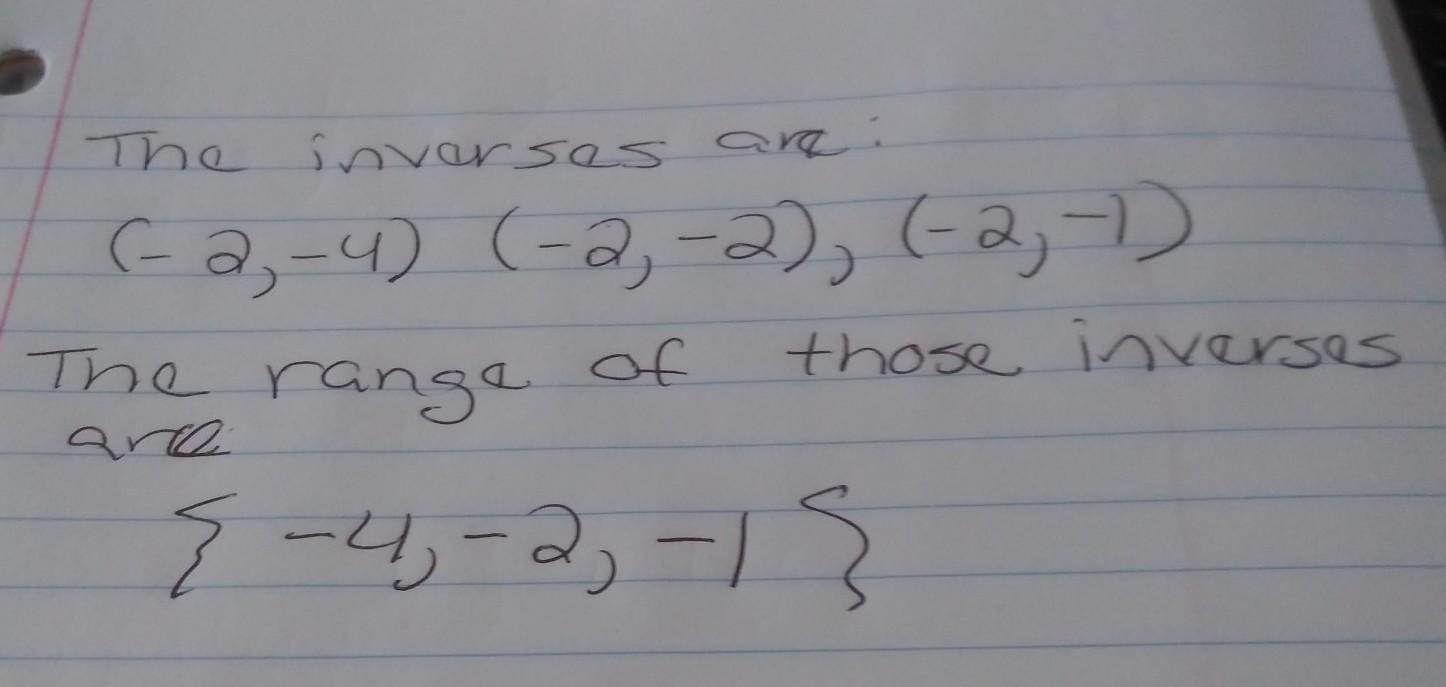 The inverses are:
(-2,-4) (-2,-2), (-2,-1)
The range of those inverses
are
{-4,-2,-1}